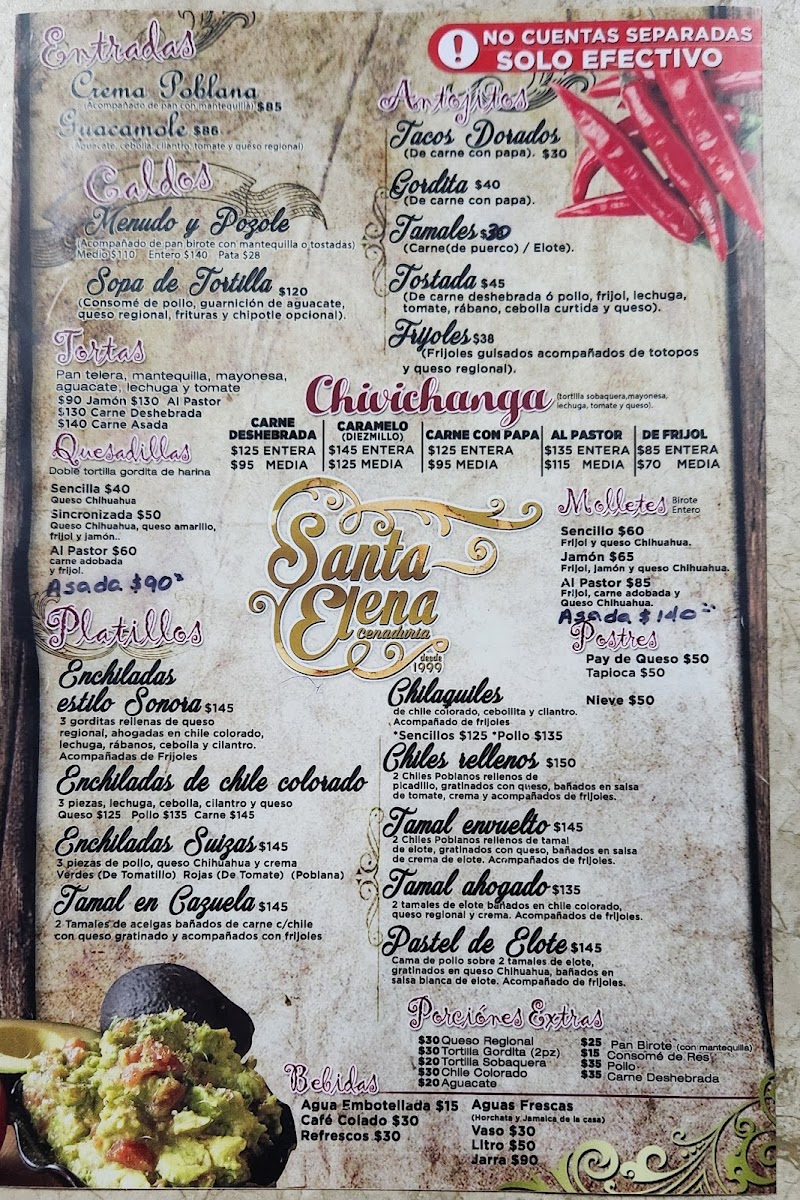 NO CUENTAS SEPARADAS
SOLO EFECTIVO
Entradas
Crema Poblana
(Acompañado de pan con mantequilla) $85
Guacamole $86
(Aguacate, cebolla, cilantro, tomate y queso regional)
Caldos
Menudo y Pozole
(Acompañado de pan birote con mantequilla o tostadas)
Medio $110 Entero $140 Pata $28
Sopa de Tortilla $120
(Consomé de pollo, guarnición de aguacate,
queso regional, frituras y chipotle opcional).
Tortas
Pan telera, mantequilla, mayonesa,
aguacate, lechuga y tomate
$90 Jamón $130 Al Pastor
$130 Carne Deshebrada
$140 Carne Asada
Quesadillas
Doble tortilla gordita de harina
Sencilla $40
Queso Chihuahua
Sincronizada $50
Queso Chihuahua, queso amarillo,
frijol y jamón..
Al Pastor $60
carne adobada
y frijol.
Asada $90
Antojitos
Tacos Dorados
(De carne con papa). $30
Gordita $40
(De carne con papa).
Tamales $30
(Carne(de puerco) / Elote).
Tostada $45
(De carne deshebrada ó pollo, frijol, lechuga,
tomate, rábano, cebolla curtida y queso).
Frijoles $38
(Frijoles guisados acompañados de totopos
y queso regional).
Chivichanga (tortilla sobaquera,mayonesa,
lechuga, tomate y queso).
CARNE
DESHEBRADA
$125 ENTERA
$95 MEDIA
CARAMELO
(DIEZMILLO)
$145 ENTERA
$125 MEDIA
CARNE CON PAPA
$125 ENTERA
$95 MEDIA
AL PASTOR
$135 ENTERA
$115 MEDIA
DE FRIJOL
$85 ENTERA
$70 MEDIA
Santa
Elena
Cenaduría
desde
1999
Molletes Birote
Entero
Sencillo $60
Frijol y queso Chihuahua.
Jamón $65
Frijol, jamón y queso Chihuahua.
Al Pastor $85
Frijol, carne adobada y
Queso Chihuahua.
Asada $140
Postres
Pay de Queso $50
Tapioca $50
Nieve $50
Platillos
Enchiladas
estilo Sonora $145
3 gorditas rellenas de queso
regional, ahogadas en chile colorado,
lechuga, rábanos, cebolla y cilantro.
Acompañadas de Frijoles
Enchiladas de chile colorado
3 piezas, lechuga, cebolla, cilantro y queso
Queso $125 Pollo $135 Carne $145
Enchiladas Suizas $145
3 piezas de pollo, queso Chihuahua y crema
Verdes (De Tomatillo) Rojas (De Tomate) (Poblana)
Tamal en Cazuela $145
2 Tamales de acelgas bañados de carne c/chile
con queso gratinado y acompañados con frijoles
Chilaquiles
de chile colorado, cebollita y cilantro.
Acompañado de frijoles
*Sencillos $125 *Pollo $135
Chiles rellenos $150
2 Chiles Poblanos rellenos de
picadillo, gratinados con queso, bañados en salsa
de tomate, crema y acompañados de frijoles.
Tamal envuelto $145
2 Chiles Poblanos rellenos de tamal
de elote, gratinados con queso, bañados en salsa
de crema de elote. Acompañados de frijoles.
Tamal ahogado $135
2 tamales de elote bañados en chile colorado,
queso regional y crema. Acompañados de frijoles.
Pastel de Elote $145
Cama de pollo sobre 2 tamales de elote,
gratinados en queso Chihuahua, bañados en
salsa blanca de elote. Acompañado de frijoles.
Porciónes Extras
$30 Queso Regional
$30 Tortilla Gordita (2pz)
$20 Tortilla Sobaquera
$30 Chile Colorado
$20 Aguacate
$25 Pan Birote (con mantequilla)
$15 Consomé de Res
$35 Pollo
$35 Carne Deshebrada
Bebidas
Agua Embotellada $15
Café Colado $30
Refrescos $30
Aguas Frescas
(Horchata y Jamaica de la casa)
Vaso $30
Litro $50
Jarra $90